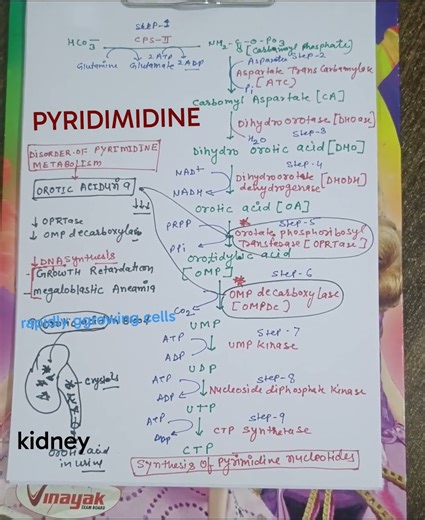 Step-1
HCO3‾ CPS-II NH2-C-O-PO3
[Carbamoyl Phosphate]
2ATP 2ADP
Glutamine Glutamate
Aspartate Step-2
Aspartate Trans Carbamylase
[ATC]
Pi
Carbamyl Aspartate [CA]
PYRIDIMIDINE
Dihydro orotase [DHOase]
H2O Step-3
Dihydro orotic acid [DHO]
DISORDER OF PYRIMIDINE
METABOLISM
Step-4
NAD+
Dihydroorotate [DHODH]
dehydrogenase
NADH
OROTIC ACIDURIA
↓↓↓
Orotic acid [OA]
↓ OPRTase
↓ OMP decarboxylase
PRPP
Step-5
Orotate phosphoribosyl
Transferase [OPRTase]
PPi
Orotidylic acid
[OMP]
↓ DNA Synthesis
- GROWTH Retardation
- megaloblastic Anaemia
Step-6
OMP decarboxylase
[OMPDC]
CO2
rapidly gorowing cells
UMP
Step-7
ATP
UMP Kinase
ADP
UDP
Step-8
ATP
Nucleoside diphosphate Kinase
ADP
Crystals
UTP
Step-9
ATP
CTP Synthetase
ADP
CTP
kidney
Orotic acid
in urine
Synthesis Of Pyrimidine nucleotides
Vinayak
EXAM BOARD